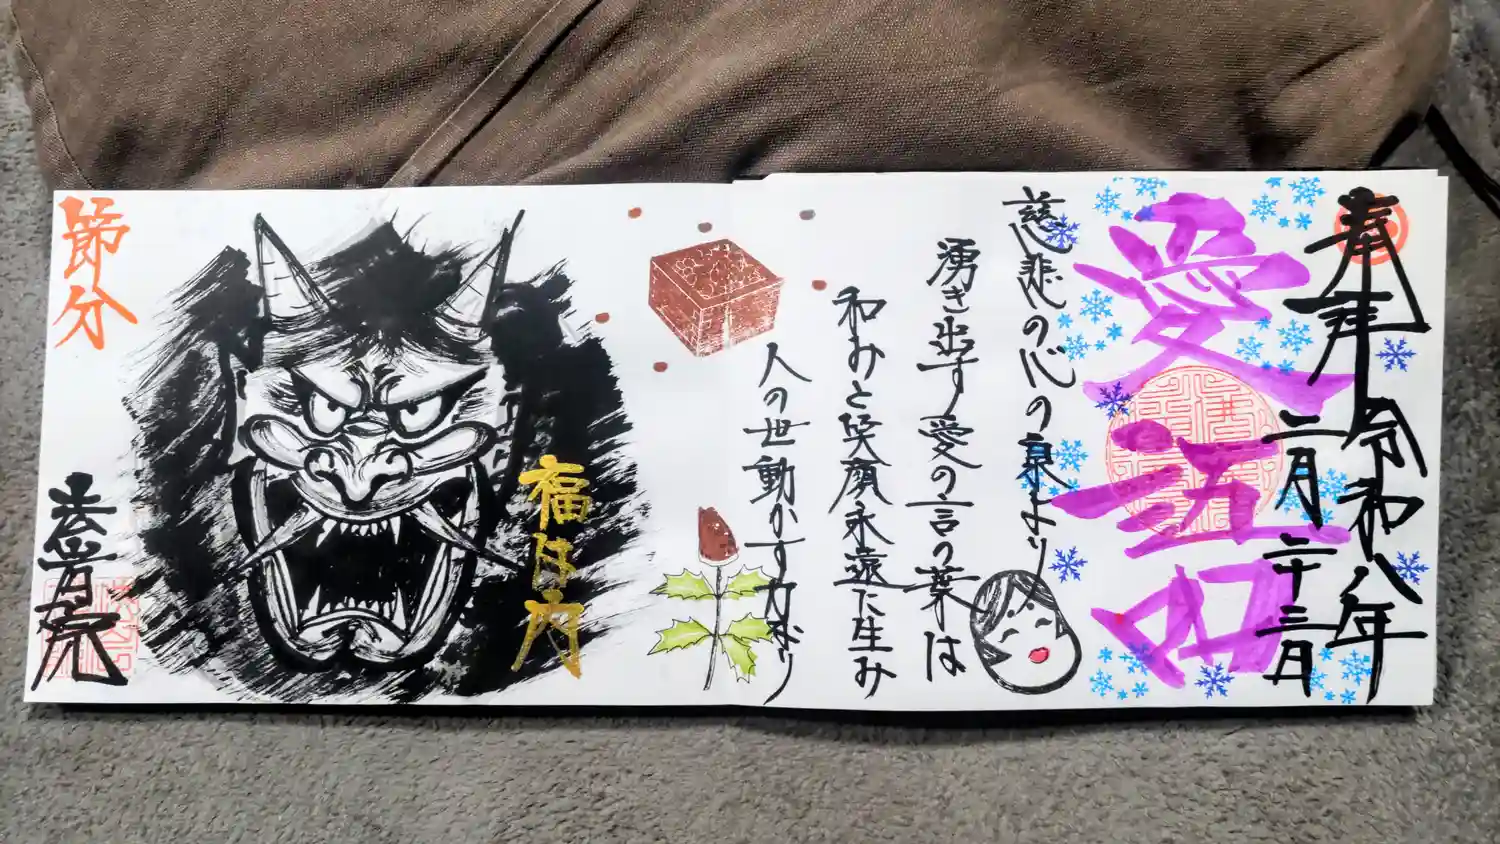 奉拝
令和八年
二月二十三日
愛語
慈悲の心の泉より
湧き出す愛の言の葉は
和みと笑顔永遠に生み
人の世動かす力なり
福は内
節分